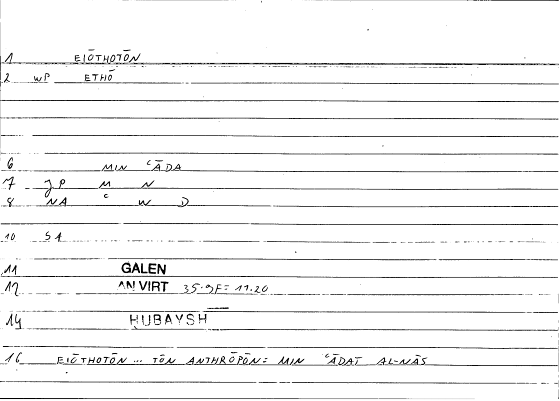 1 EIŌTHOTŌN
2 WP ETHŌ
6 MIN ʿĀDA
7 JP M N
8 NA ʿ W D
10 SA
11 GALEN
12 AN VIRT 35.9F = 11.20
14 HUBAYSH
16 EIŌTHOTŌN ... TŌN ANTHRŌPŌN: MIN ʿĀDAT AL-NĀS